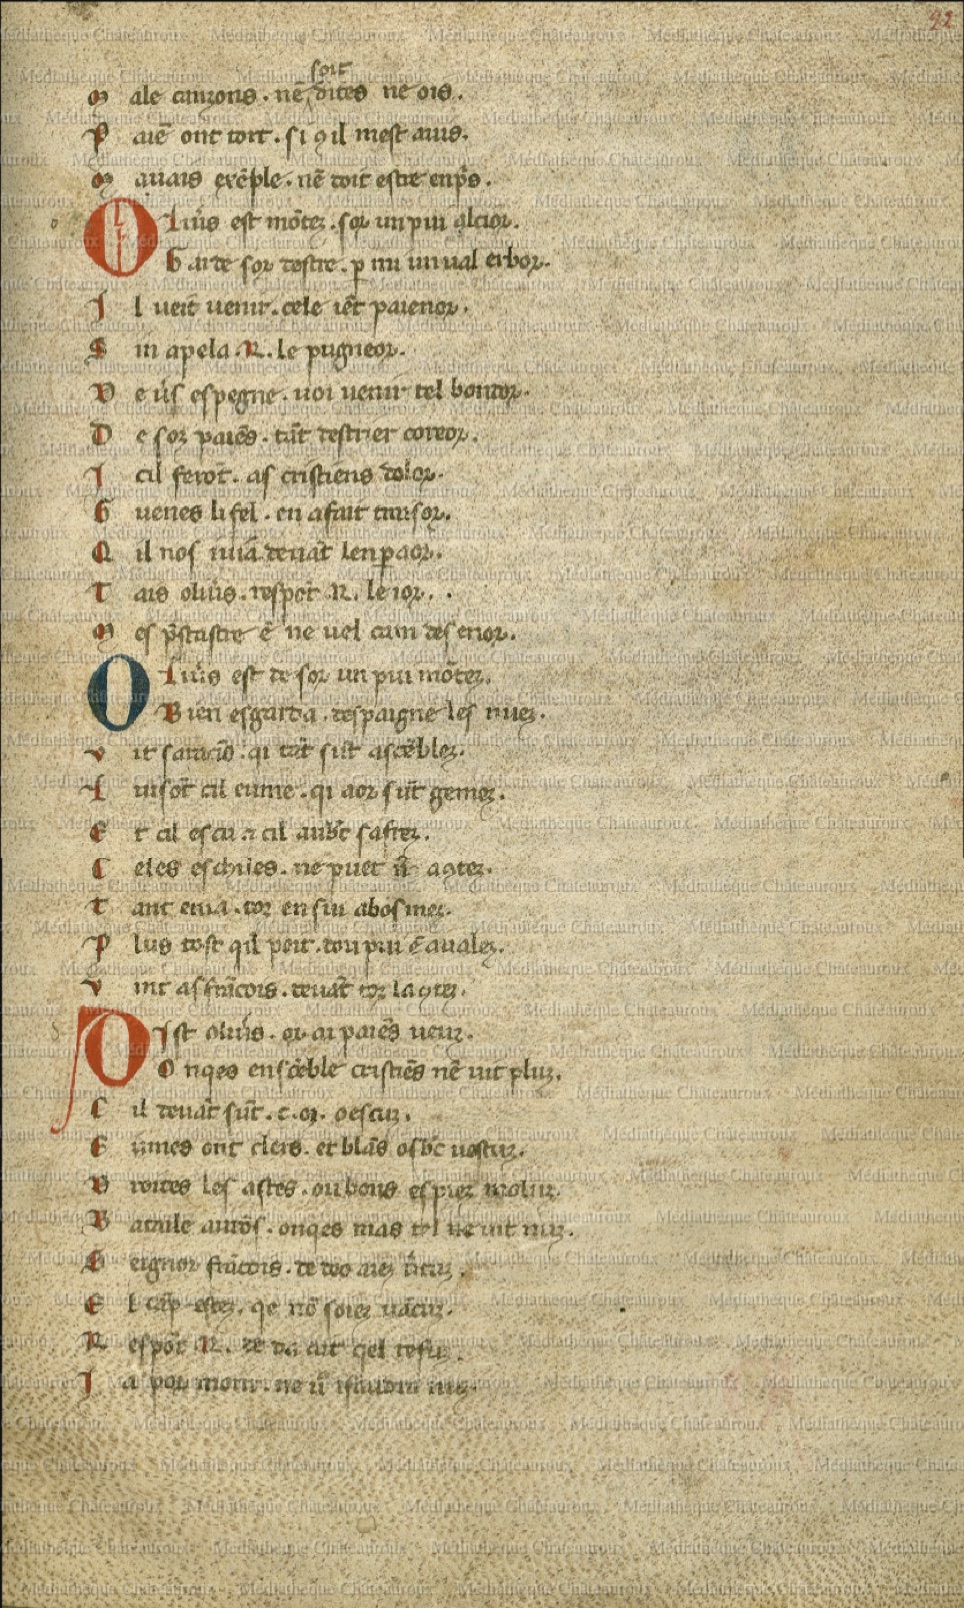 92
soit
M ale canzons . ne dites ne ois .
P aiē ont tort . si ꝯ il mest auis .
M auais exēple . nē doit estre enp̄s .
O Liũs est mōtez . sor un pui alcior .
G arde sor destre . ꝑ mi un ual erbor .
I l ueit uenir . cele iēt paienor .
S in apela .R. le pugneor .
D e ũs espegne . uoi uenir tel bontor .
D e sor paiēs . tāt destrier coreor .
I cil ferōt . as cristiens dolor .
G uenes li fel . en a fait traisor .
Q il nos iuia deuāt lenꝑaor .
T ais oliũs . respōt .R. le ior . .
M es p̄strastre ē ne uel cun des enor .
O Liũs est de sor un pui mōtez .
B ien esgarda . despaigne les nuez .
V it saracīs . qi tāt sūt asēblez .
L uisōt cil eume . qi a or sūt gemez .
E t cil escu ⁊ cil aub̄c safrez .
C eles eschiles . ne puet n̄ acōtez .
T ant enia . toz en fui abosmez .
P lus tost qil poit . dou pui ē aualez .
V int as frācois . deuāt toz la ꝯtez .
D ist oliũs . or ai paiēs ueuz .
O nqes ensēble cristiēs nē uit pluz .
C il deuāt sūt . c . m . o escuz .
E umes ont clers . et blās osb̄c uestuz .
D roites les astes . ou bons espiez moluz .
B ataile aurōs . onqes mas tel ne uit nuz .
S eignor frācois . de deo aiez ũtuz .
E l cāp estez . qe nō soiez uācuz .
R espōt .R. de da ait qel refuz .
I a por morir . ne ũ ifaudra nuz .
Médiathèque Châteauroux